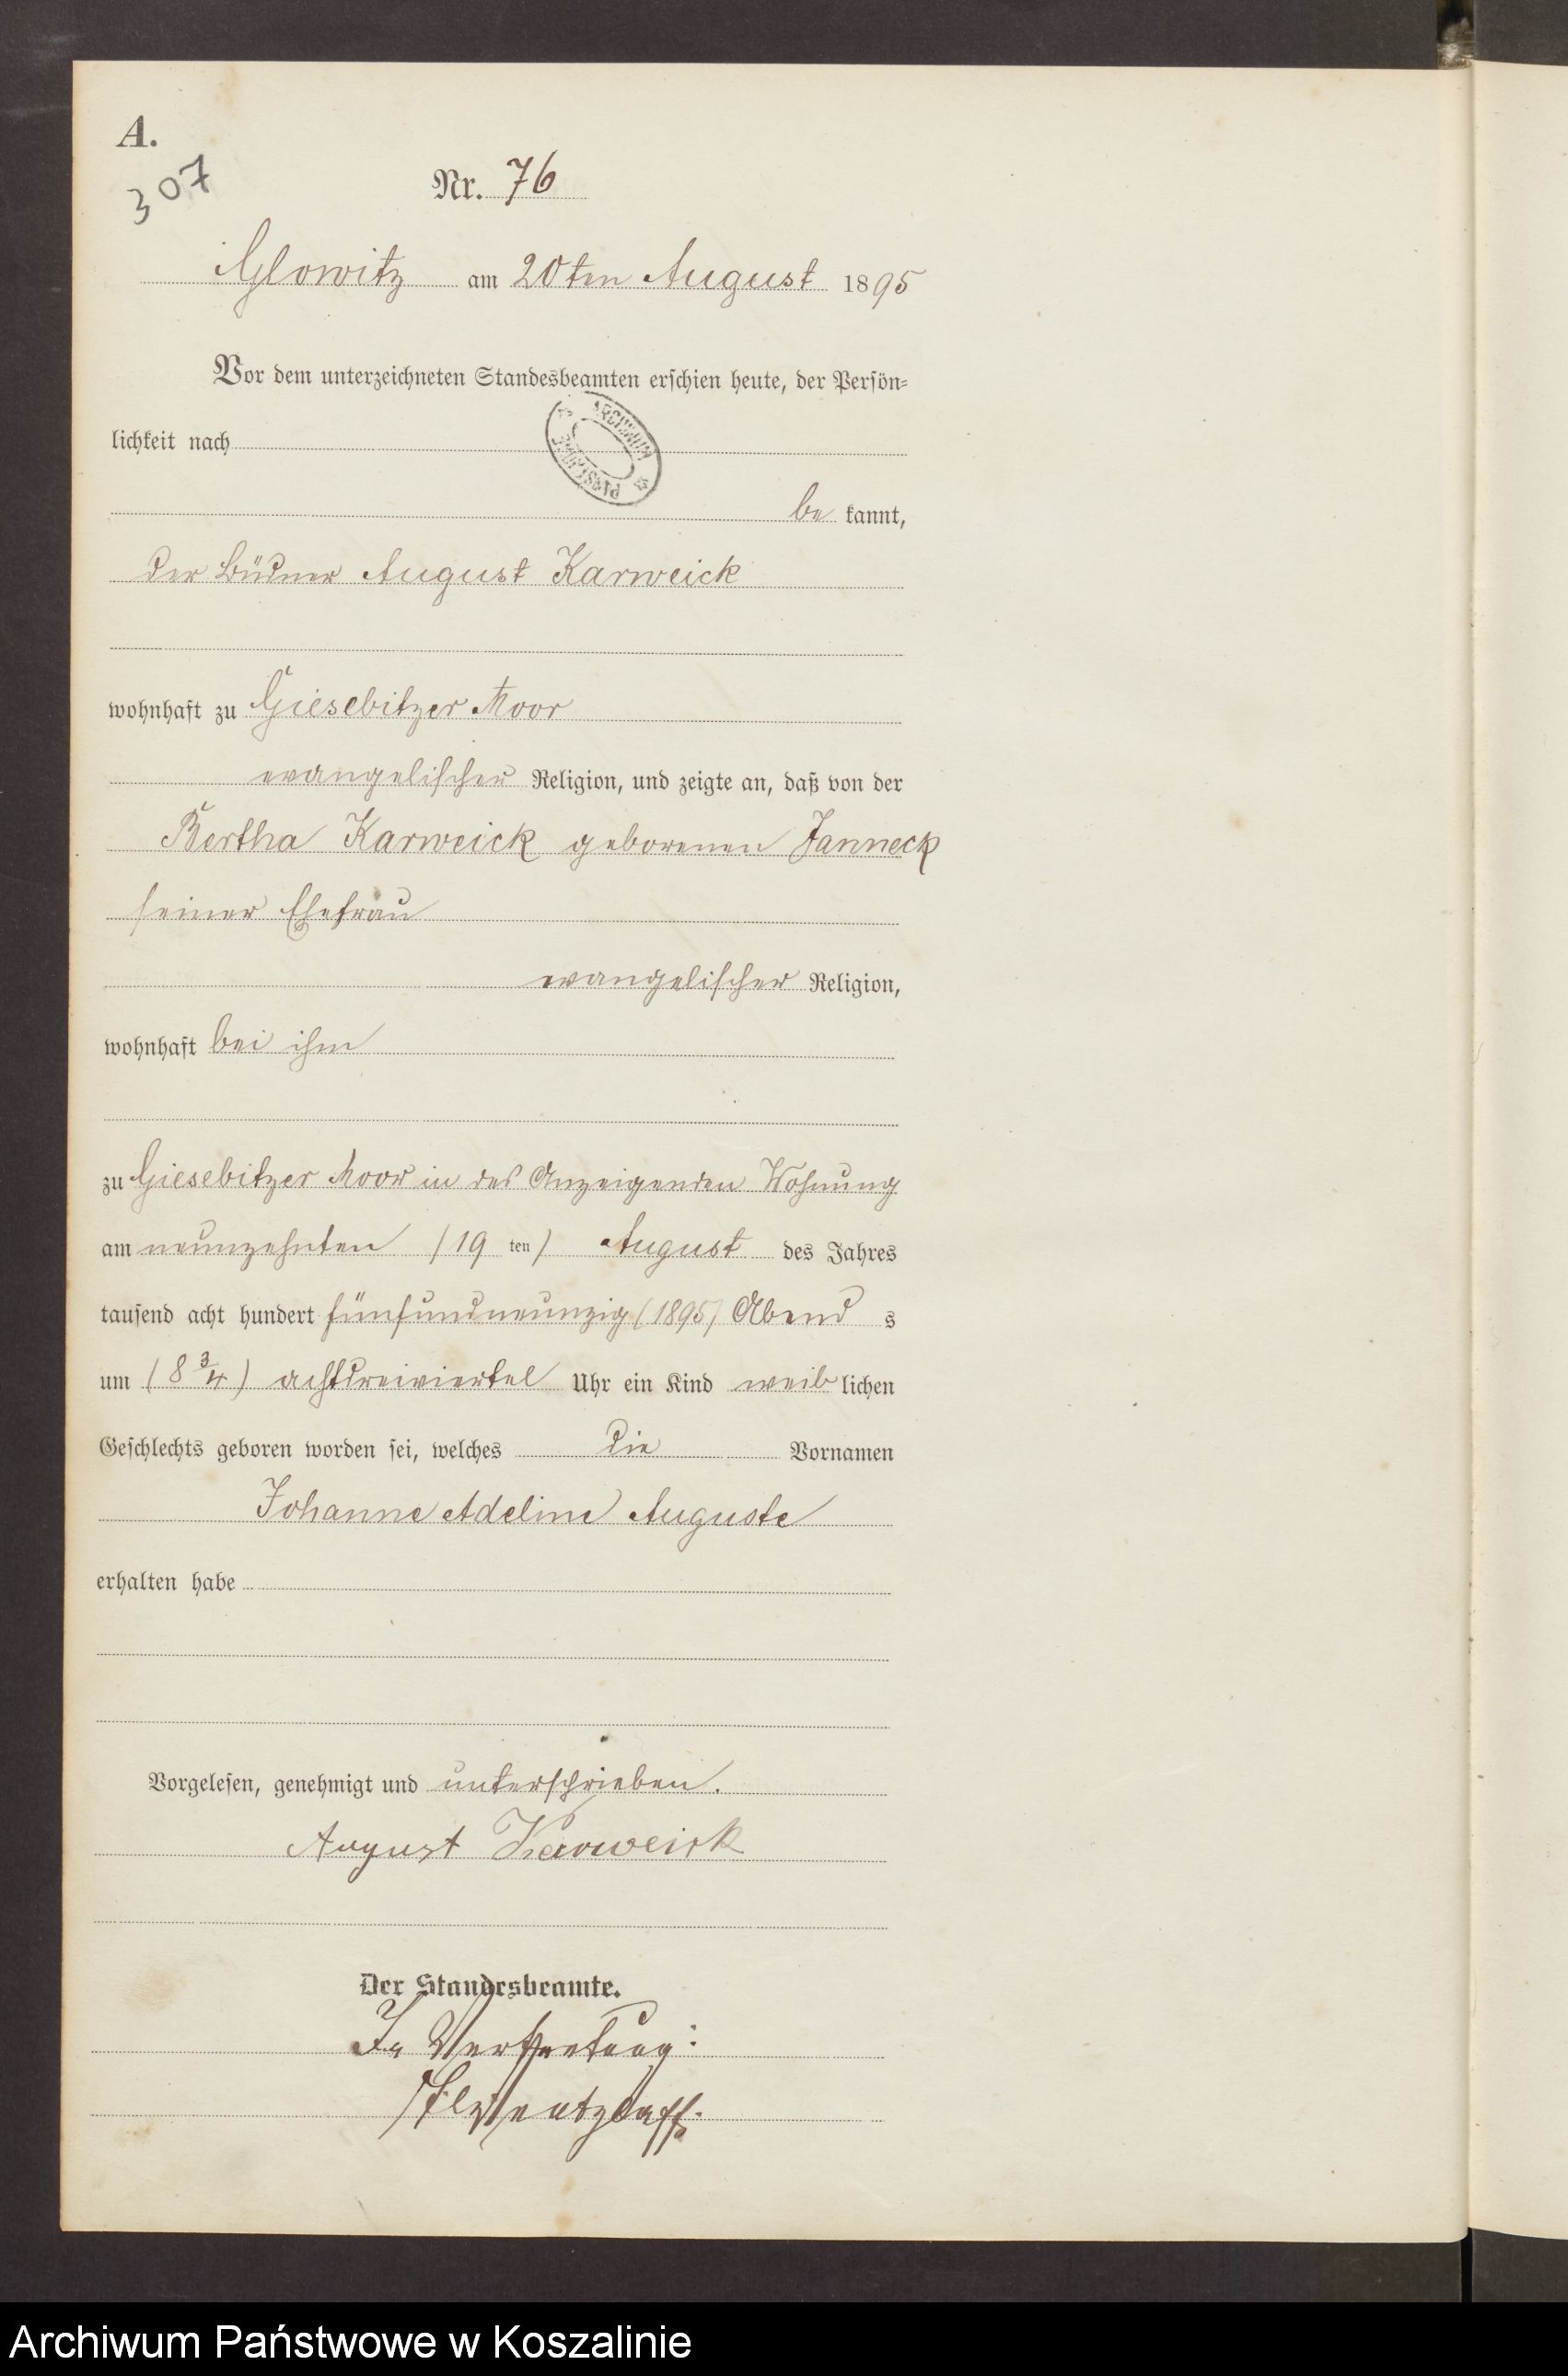 A.
307
Nr. 76
Glowitz am 20ten August 1895
Vor dem unterzeichneten Standesbeamten erschien heute, der Persön-
lichkeit nach
ARCHIWUM
PAŃSTWOWE
be kannt,
der Büdner August Karweick
wohnhaft zu Giesebitzer Moor
evangelischer Religion, und zeigte an, daß von der
Bertha Karweick geborenen Janneck
seiner Ehefrau
evangelischer Religion,
wohnhaft bei ihm
zu Giesebitzer Moor in des Anzeigenden Wohnung
am neunzehnten (19 ten) August des Jahres
tausend acht hundert fünfundneunzig (1895) Abend s
um (8 3/4) achtdreiviertel Uhr ein Kind weib lichen
Geschlechts geboren worden sei, welches die Vornamen
Johanne Adeline Auguste
erhalten habe
Vorgelesen, genehmigt und unterschrieben.
August Karweick
Der Standesbeamte.
In Vertretung:
Archiwum Państwowe w Koszalinie